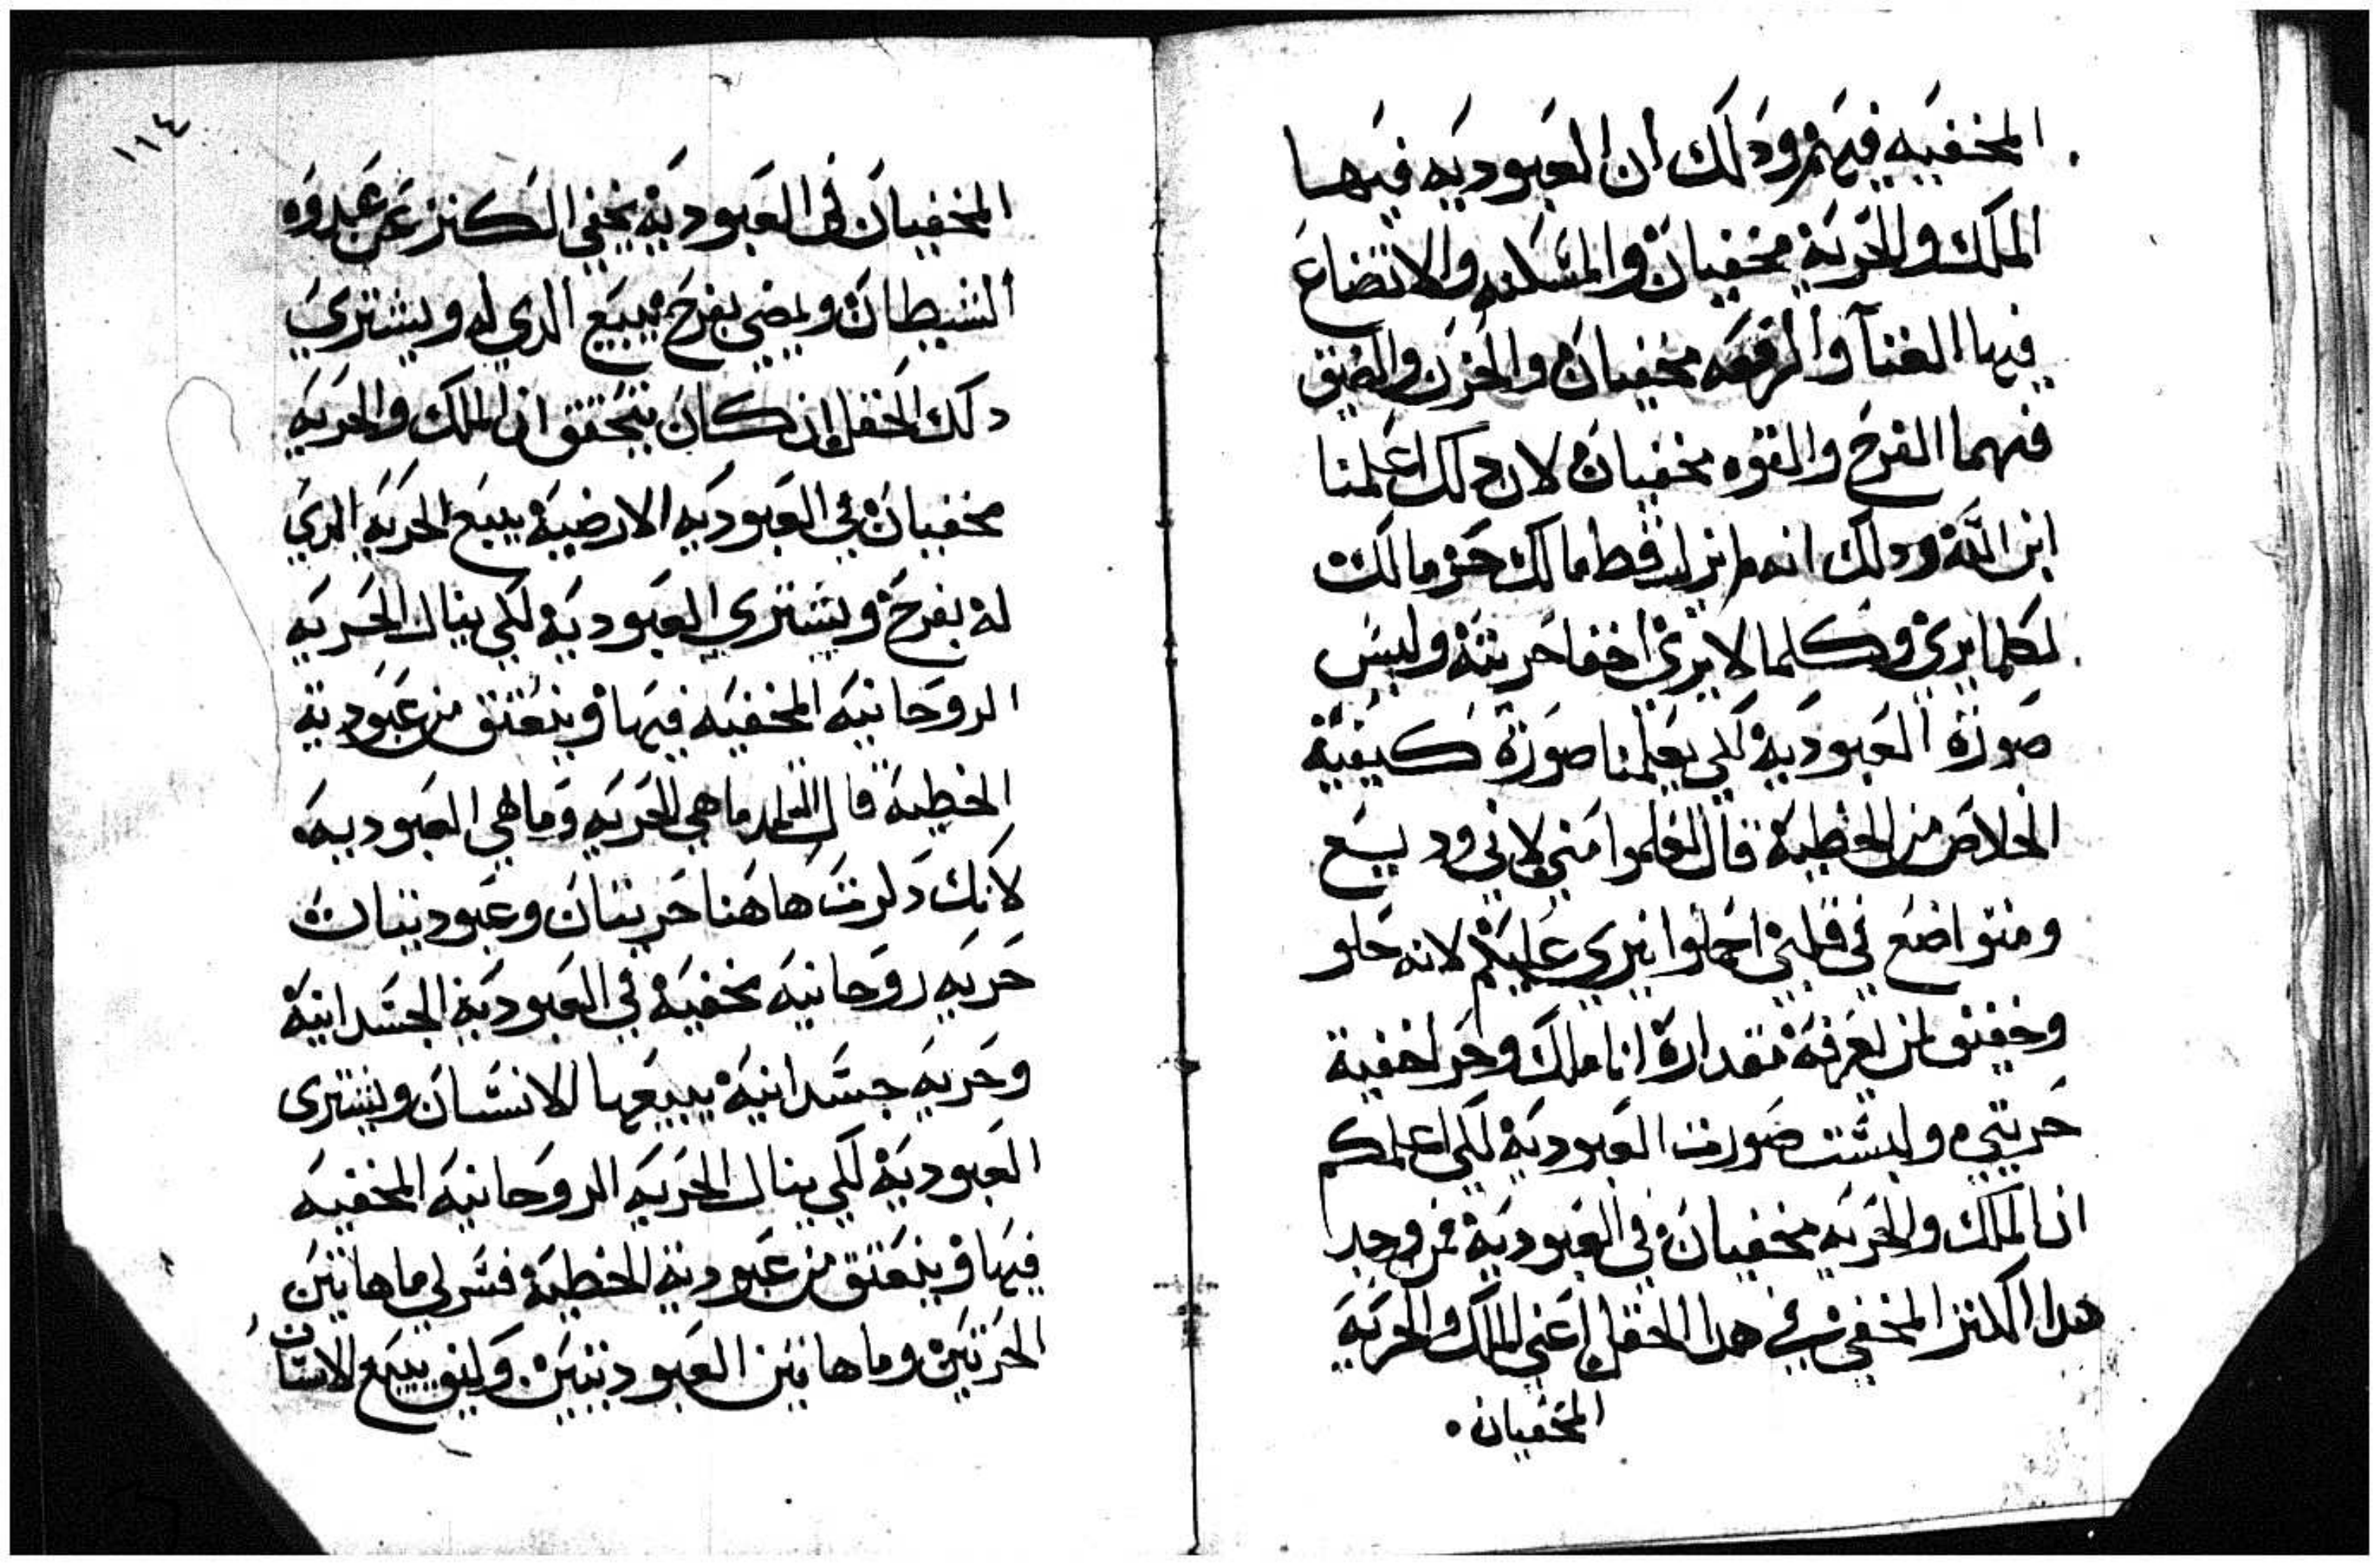 المخفيه فيهم ودلك ان العبوديه فيها
الملك والحريه مخفيان والمسكنه والاتضاع
فيها الغنا والرفعه مخفيان والحزن والضيق
فيهما الفرح والقوه مخفيان لان دلك اعلمنا
ابن الله ودلك انه لم يزل قط مالك حر مالك
لكلما يرى وكلما لا يرى اخفا حريته ولبس
صورة العبوديه لكي يعلمنا صورة كيفية
الخلاص من الخطية قال تعلموا مني لاني وديع
ومتواضع في قلبي احملوا نيري عليكم لانه حلو
وخفيف لمن يعرفة مقدارة انا ملك وحر اخفية
حريتي ولبست صورت العبودية لكي اعلمكم
ان الملك والحريه مخفيان في العبودية فمن وجد
هدا الكنز المخفي في هدا الحقل اعني الملك والحرية
المخفيان
١١٤
المخفيان في العبودية يخفي الكنز عن عدوه
الشيطان ويمضي بفرح يبيع الدي له ويشتري
دلك الحقل اذ كان يتحقق ان الملك والحريه
مخفيان في العبوديه الارضية يبيع الحرية الدي
له بفرح ويشتري العبودية لكي ينال الحريه
الروحانية المخفيه فيها وينعتق من عبودية
الخطية قال التلميد ما هي الحريه وما هي العبوديه
لانك دكرت هاهنا حريتان وعبوديتان
حريه روحانيه مخفية في العبودية الجسدانية
وحريه جسدانية يبيعها الانسان ويشترى
العبودية لكي ينال الحريه الروحانيه المخفيه
فيها وينعتق من عبودية الخطية فسر لي ما هاتين
الحريتين وما هاتين العبوديتين وكيف يبيع الانسان